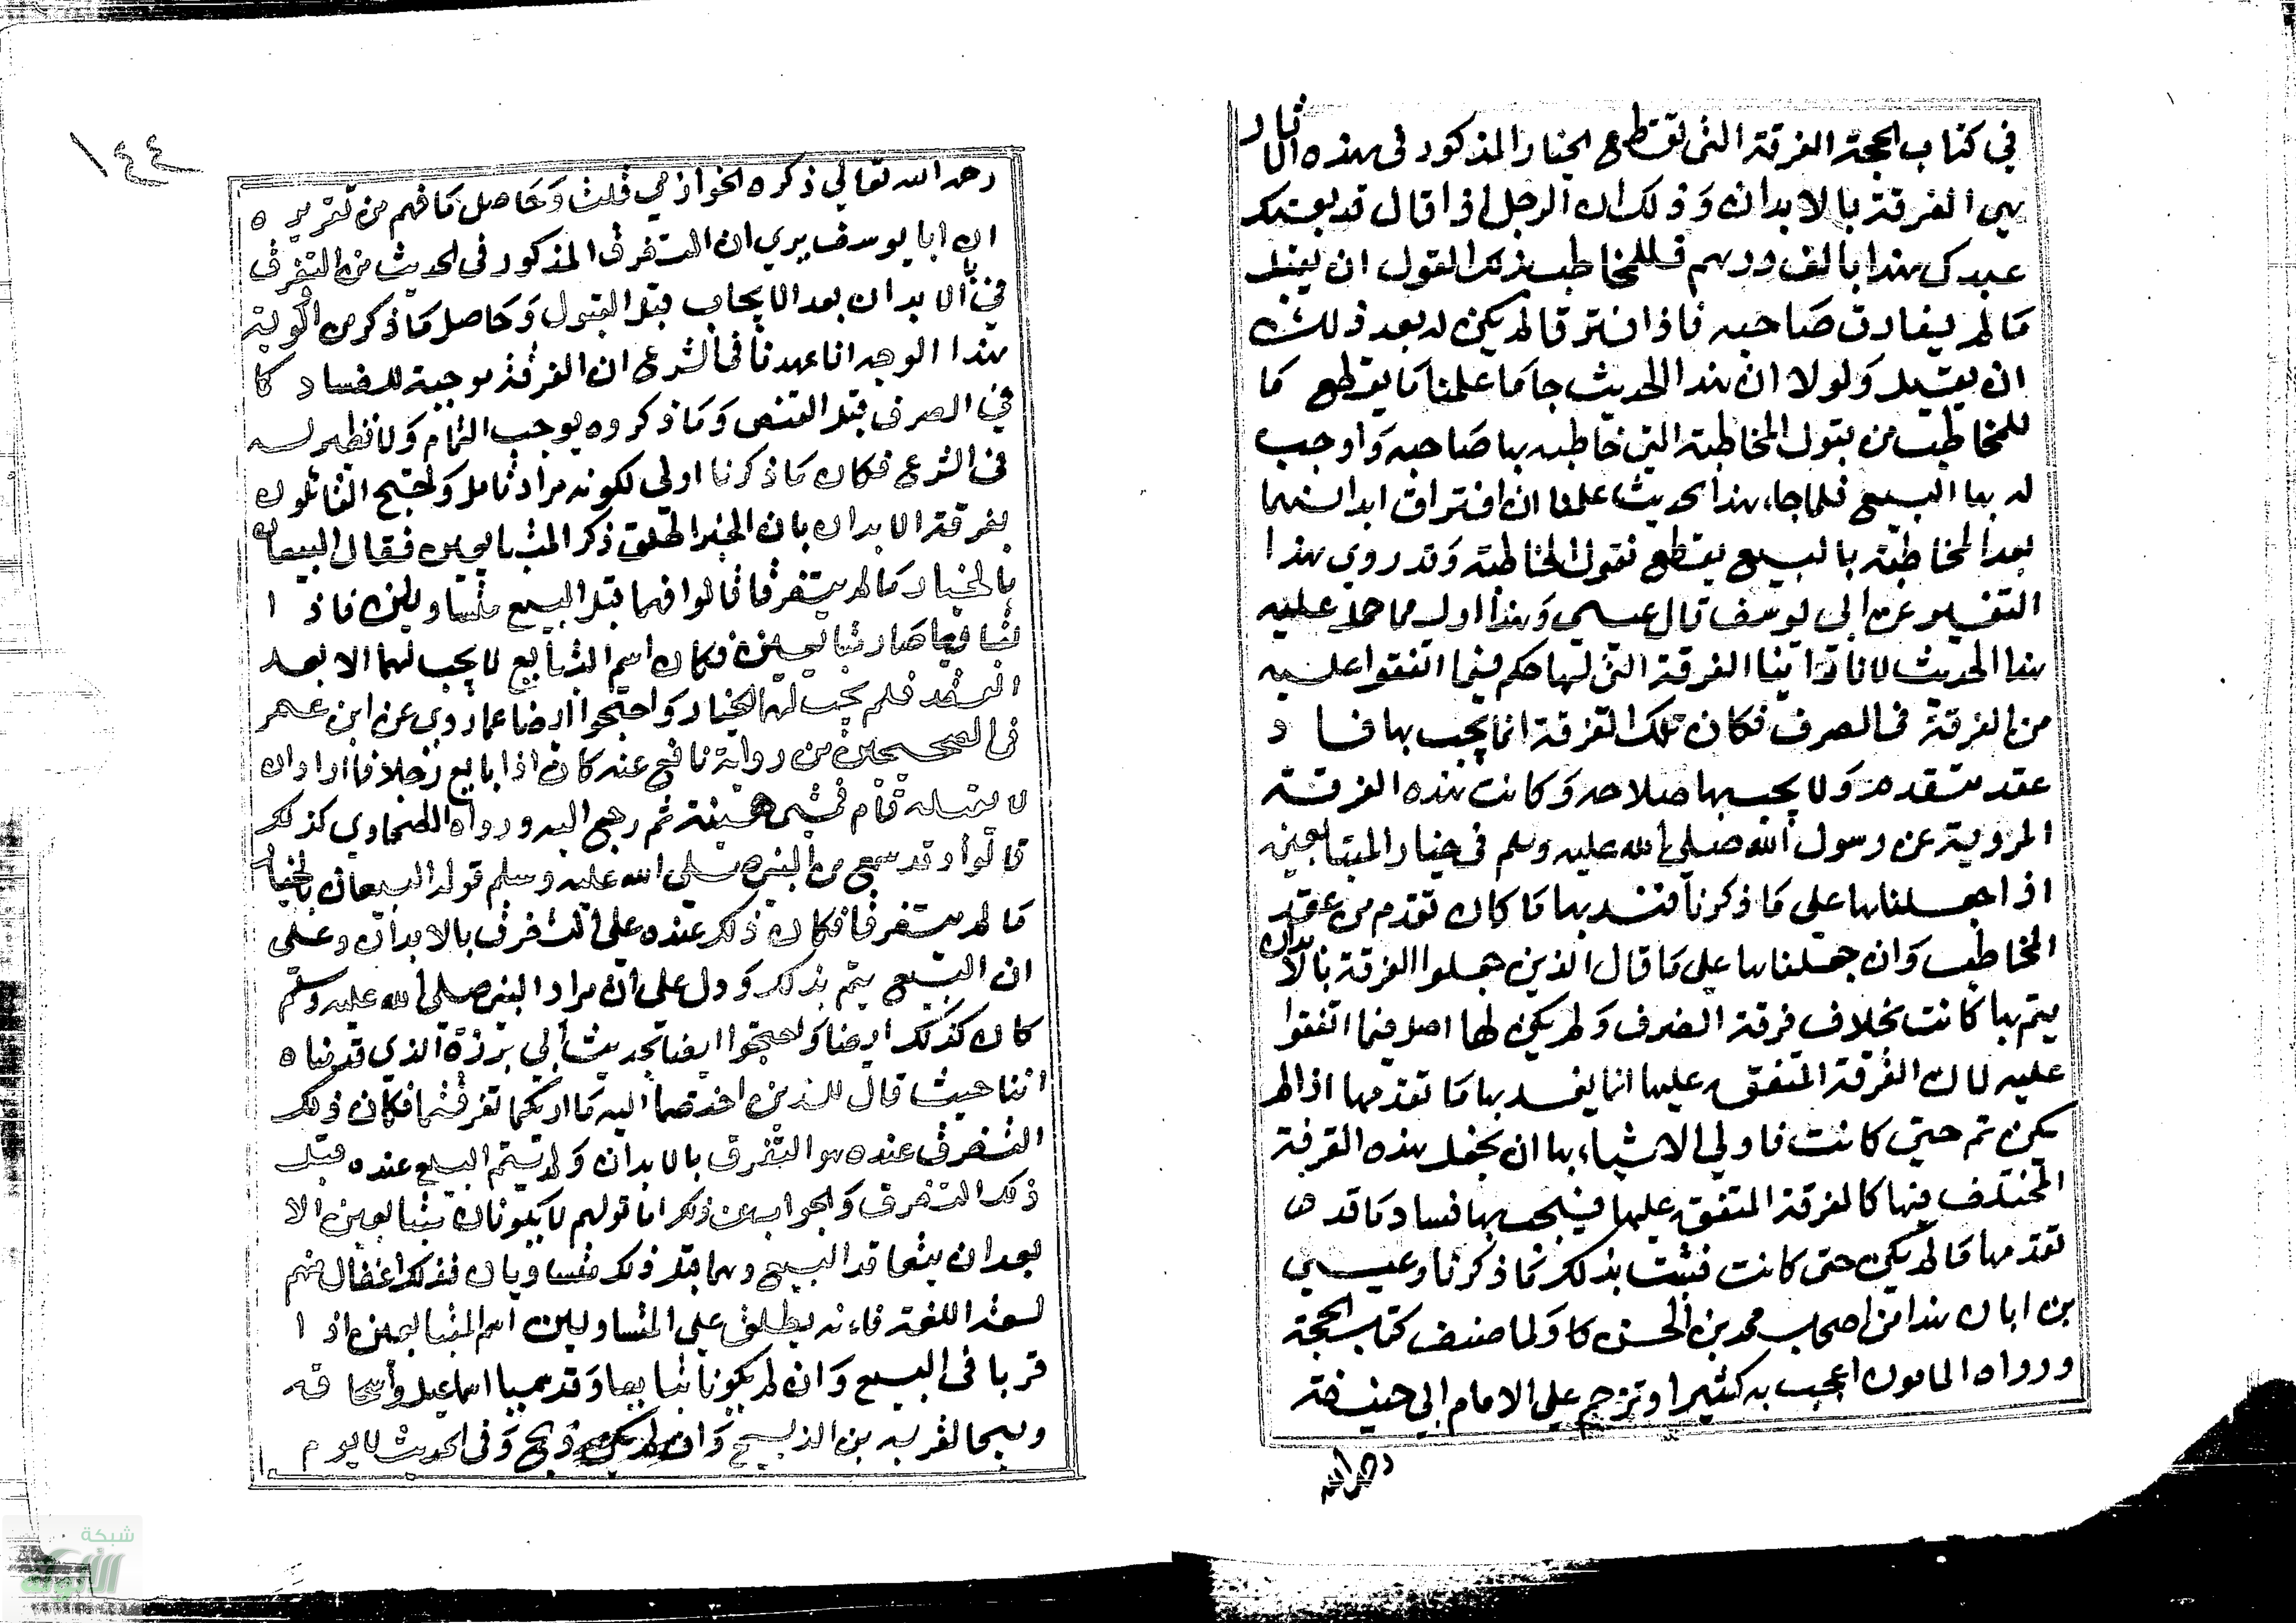 في كتاب الحجة الفرقة التي تقطع الخيار المذكور في هذه الآثار
هي الفرقة بالابدان وذلك ان الرجل اذا قال قد بعتك
عبدك هذا بالف درهم فللمخاطب بذلك القول ان يقبل
ما لم يفارق صاحبه فاذا افترقا لم يكن له بعد ذلك
ان يقبل ولولا ان هذا الحديث جا ما علمنا ما يقطع ما
للمخاطب من قبول المخاطبة التي خاطبه بها صاحبه واوجب
له بها البيع فلما جاء هذا الحديث علمنا ان افتراق ابدانهما
بعد المخاطبة بالبيع يقطع قبول المخاطبة وقد روي هذا
التفسير عن ابي يوسف قال عيسى وهذا اولى مما حمل عليه
هذا الحديث لانا راينا الفرقة التي لها حكم فيما اتفقوا عليه
من الفرقة في الصرف فكان تلك الفرقة انما يجب بها فساد
عقد متقدم ولا يجب بها صلاحه وكانت هذه الفرقة
المروية عن رسول الله صلى الله عليه وسلم في خيار المتبايعين
اذا جعلناها على ما ذكرنا فسد بها ما كان تقدم من عقد
المخاطب وان جعلناها على ما قال الذين جعلوا الفرقة بالابدان
يتم بها كانت بخلاف فرقة الصرف ولم يكن لها اصل فيما اتفقوا
عليه لان الفرقة المتفق عليها انما يفسد بها ما تقدمها اذا لم
يكن تم حتى كانت فاولي الاشياء بها ان نجعل هذه الفرقة
المختلف فيها كالفرقة المتفق عليها فيجب بها فساد ما قد
تقدمها ما لم يكن حتى كانت فثبت بذلك ما ذكرنا وعيسى
بن ابان هذا من اصحاب محمد بن الحسن كا ولما صنف كتاب الحجة
ورواه المامون اعجب به كثيرا وترحم على الامام ابي حنيفة
رحمه الله
١٤٤
رحمه الله تعالى ذكره الخوارزمي قلت وحاصل ما فهم من تقريره
ان ابا يوسف يري ان التفرق المذكور في الحديث هو التفرق
في الابدان بعد الايجاب قبل القبول وحاصل ما ذكر من اولوية
هذا الوجه انا عهدنا في الشرع ان الفرقة موجبة للفساد كا
في الصرف قبل القبض وما ذكروه يوجب التمام ولا نظير له
في الشرع فكان ما ذكرنا اولى لكونه مراد تامل ولحتج القائلون
بفرقة الابدان بان الخبر اطلق ذكر المتبايعين فقال البيعان
بالخيار ما لم يتفرقا قالوا فهما قبل البيع متساومين فاذا
تبايعا صار متبايعين فكان اسم التبايع لا يجب لهما الا بعد
العقد فلم يجب لهما الخيار واحتجوا ايضا بما روي عن ابن عمر
في الصحيحين من رواية نافع عنه كان اذا بايع رجلا فاراد ان
لا يقيله قام فمشى هنيهة ثم رجع اليه ورواه الطحاوي كذلك
قالوا وقد سمع من النبي صلى الله عليه وسلم قوله البيعان بالخيار
ما لم يتفرقا فكان ذلك عنده على التفرق بالابدان وعلى
ان البيع يتم بذلك ودل على ان مراد النبي صلى الله عليه وسلم
كان كذلك ايضا واحتجوا ايضا بحديث ابي برزة الذي قدمناه
انفا حيث قال للذين اختصما اليه ما اراكما تفرقتما فكان ذلك
التفرق عنده هو التفرق بالابدان ولم يتم البيع عنده قبل
ذلك التفرق والجواب عن ذلك اما قولهم لا يكونان متبايعين الا
بعد ان يتعاقد البيع وهما قبل ذلك متساومان فذلك اغفال منهم
لسعة اللغة فانه يطلق على المتساومين اسم المتبايعين اذا
قربا في البيع وان لم يكونا تبايعا وقد سميا اسماعيل واسحاق
وسجا لقربه من الذبح وان لم يكن ذبح وفي الحديث لا يوم
شبكة
الألوكة